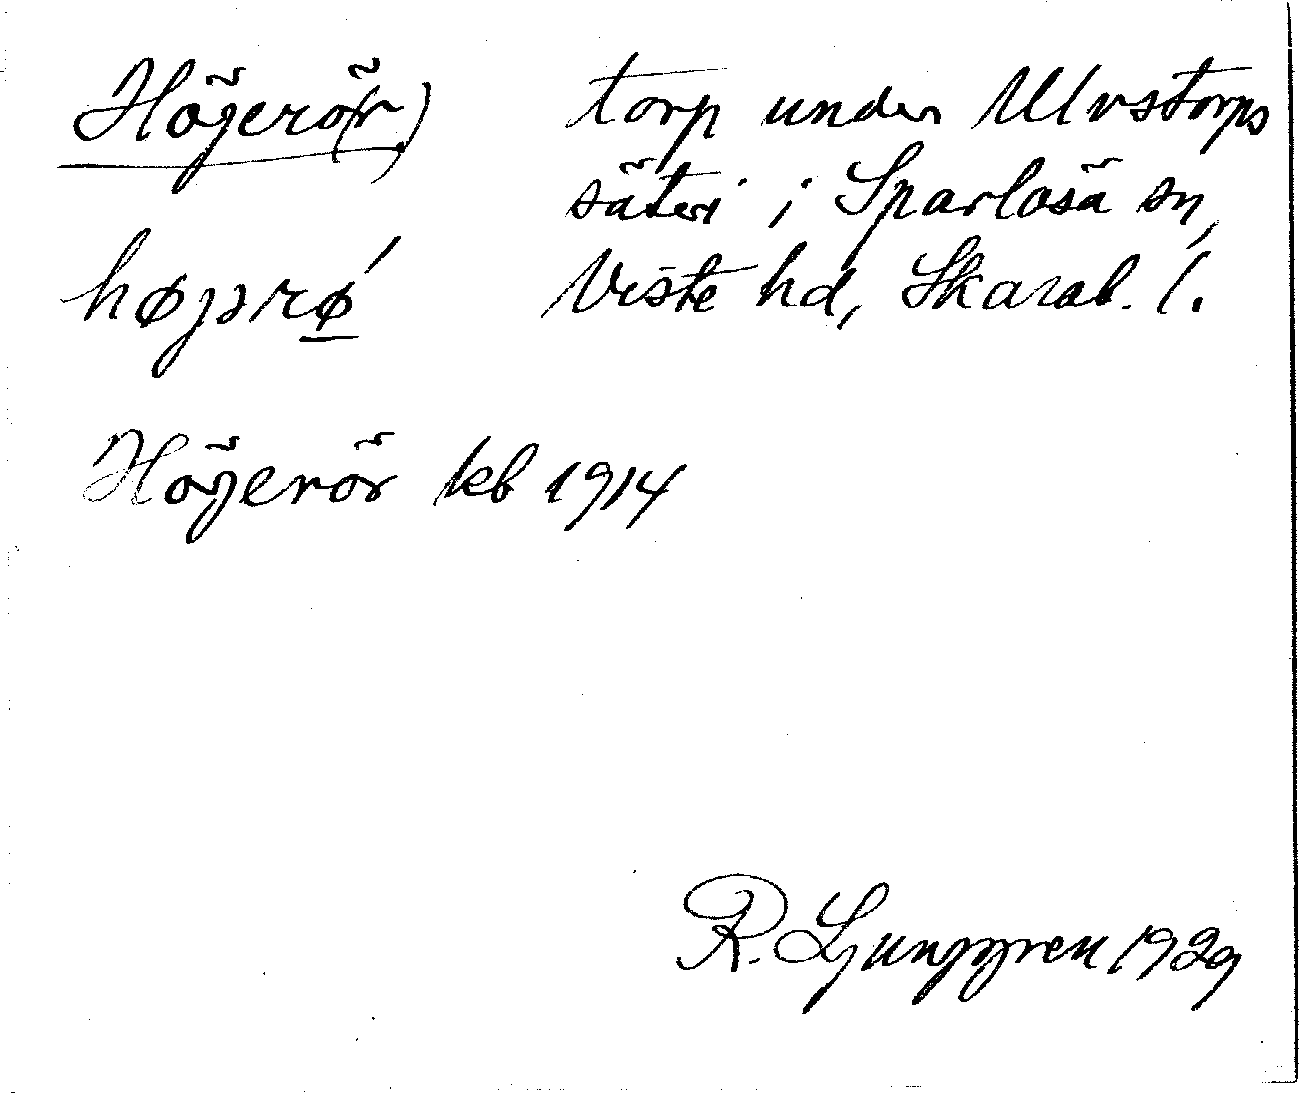 Högerö(r)
torp under Ulvstorps
säteri i Sparlösa sn,
Viste hd, Skarab. l.
høgərǿ
Högerör kb 1914
R. Ljunggren 1929